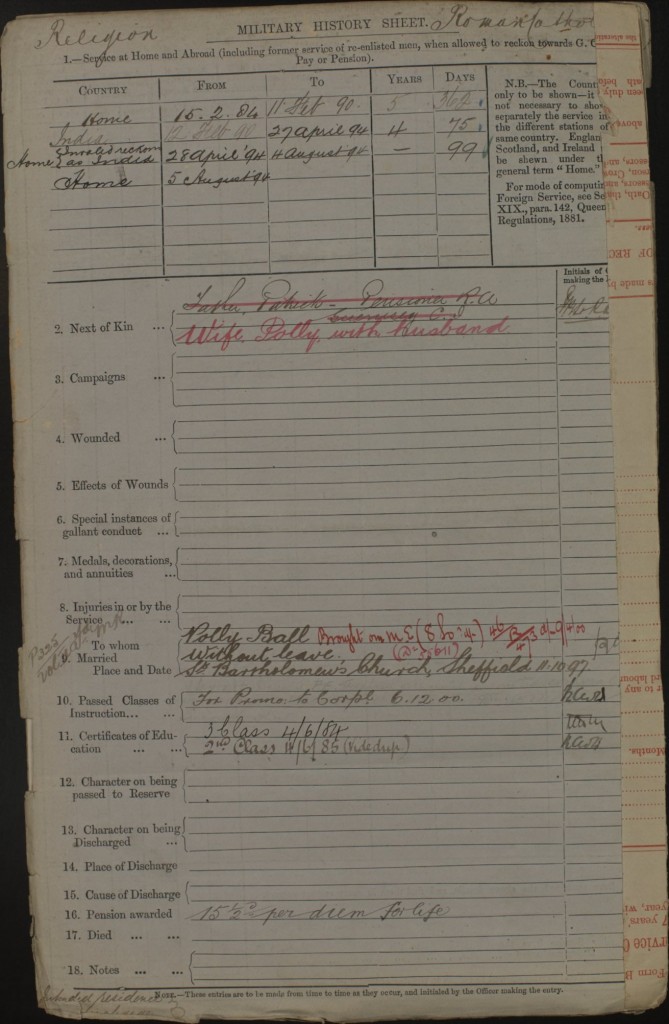 Religion MILITARY HISTORY SHEET. Roman
1.—Service at Home and Abroad (including former service of re-enlisted men, when allowed to reckon towards G. C.
Pay or Pension).
COUNTRY FROM TO YEARS DAYS
Home 15.2.84 11 Feb 90. 5 362.
India 12 Feb 90 27 April 94 4 75.
Home as India 28 April '94 4 August 94 — 99
Home 5 August 94
N.B.—The Count
only to be shown—it
not necessary to sho
separately the service in
the different stations of
same country. England
Scotland, and Ireland
be shewn under t
general term "Home."
For mode of computin
Foreign Service, see Se
XIX., para. 142, Queen
Regulations, 1881.
Initials of
making the
Father, Patrick - Pensioner R.A
2. Next of Kin ...
Wife, Polly, with husband
3. Campaigns ...
4. Wounded ...
5. Effects of Wounds
6. Special instances of
gallant conduct ...
7. Medals, decorations,
and annuities ...
8. Injuries in or by the
Service ... ...
To whom Polly Ball Brought on M.E.
9. Married without leave.
Place and Date St Bartholomew's Church, Sheffield 11.10.97
10. Passed Classes of For Promo. to Corpl. 6.12.00.
Instruction... ...
11. Certificates of Edu- 3 Class 4/6/84
cation ... ... 2nd Class
12. Character on being
passed to Reserve
13. Character on being
Discharged ...
14. Place of Discharge
15. Cause of Discharge
16. Pension awarded 15½d per diem for life
17. Died ... ...
18. Notes ... ...
Intended residence
NOTE.—These entries are to be made from time to time as they occur, and initialed by the Officer making the entry.